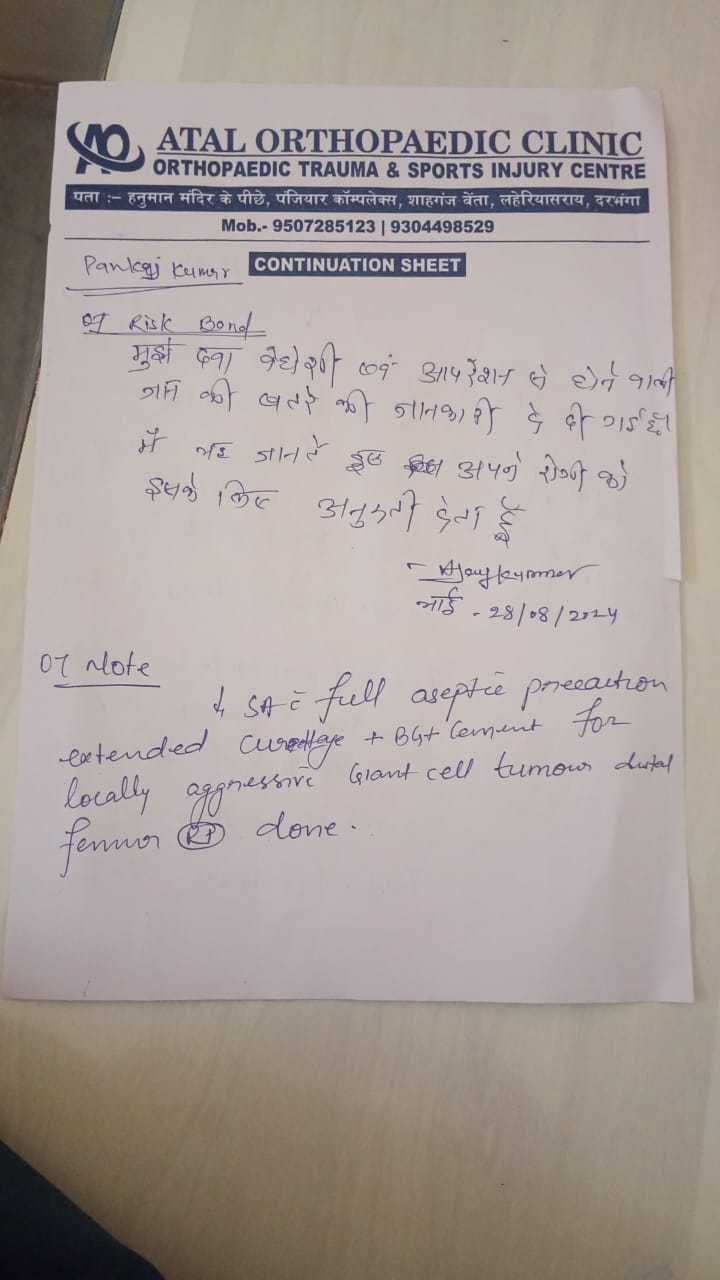 AO ATAL ORTHOPAEDIC CLINIC
ORTHOPAEDIC TRAUMA & SPORTS INJURY CENTRE
पता :– हनुमान मंदिर के पीछे, पंजियार कॉम्पलेक्स, शाहगंज बेंता, लहेरियासराय, दरभंगा
Mob.- 9507285123 | 9304498529
Pankaj Kumar CONTINUATION SHEET
OT Risk Bond
मुझे दवा बेहोशी एवं आपरेशन से होने वाली
की खतरे की जानकारी दे दी गई है।
मैं यह जानते हुए अपने रोगी को
इसके लिए अनुमती देता हूँ
- Ajay Kummar
भाई - 28/08/2024
OT Note
↓ SA c̄ full aseptic precaution
extended curettage + BG+ Cement for
locally aggressive Giant cell tumour distal
femur RT done.